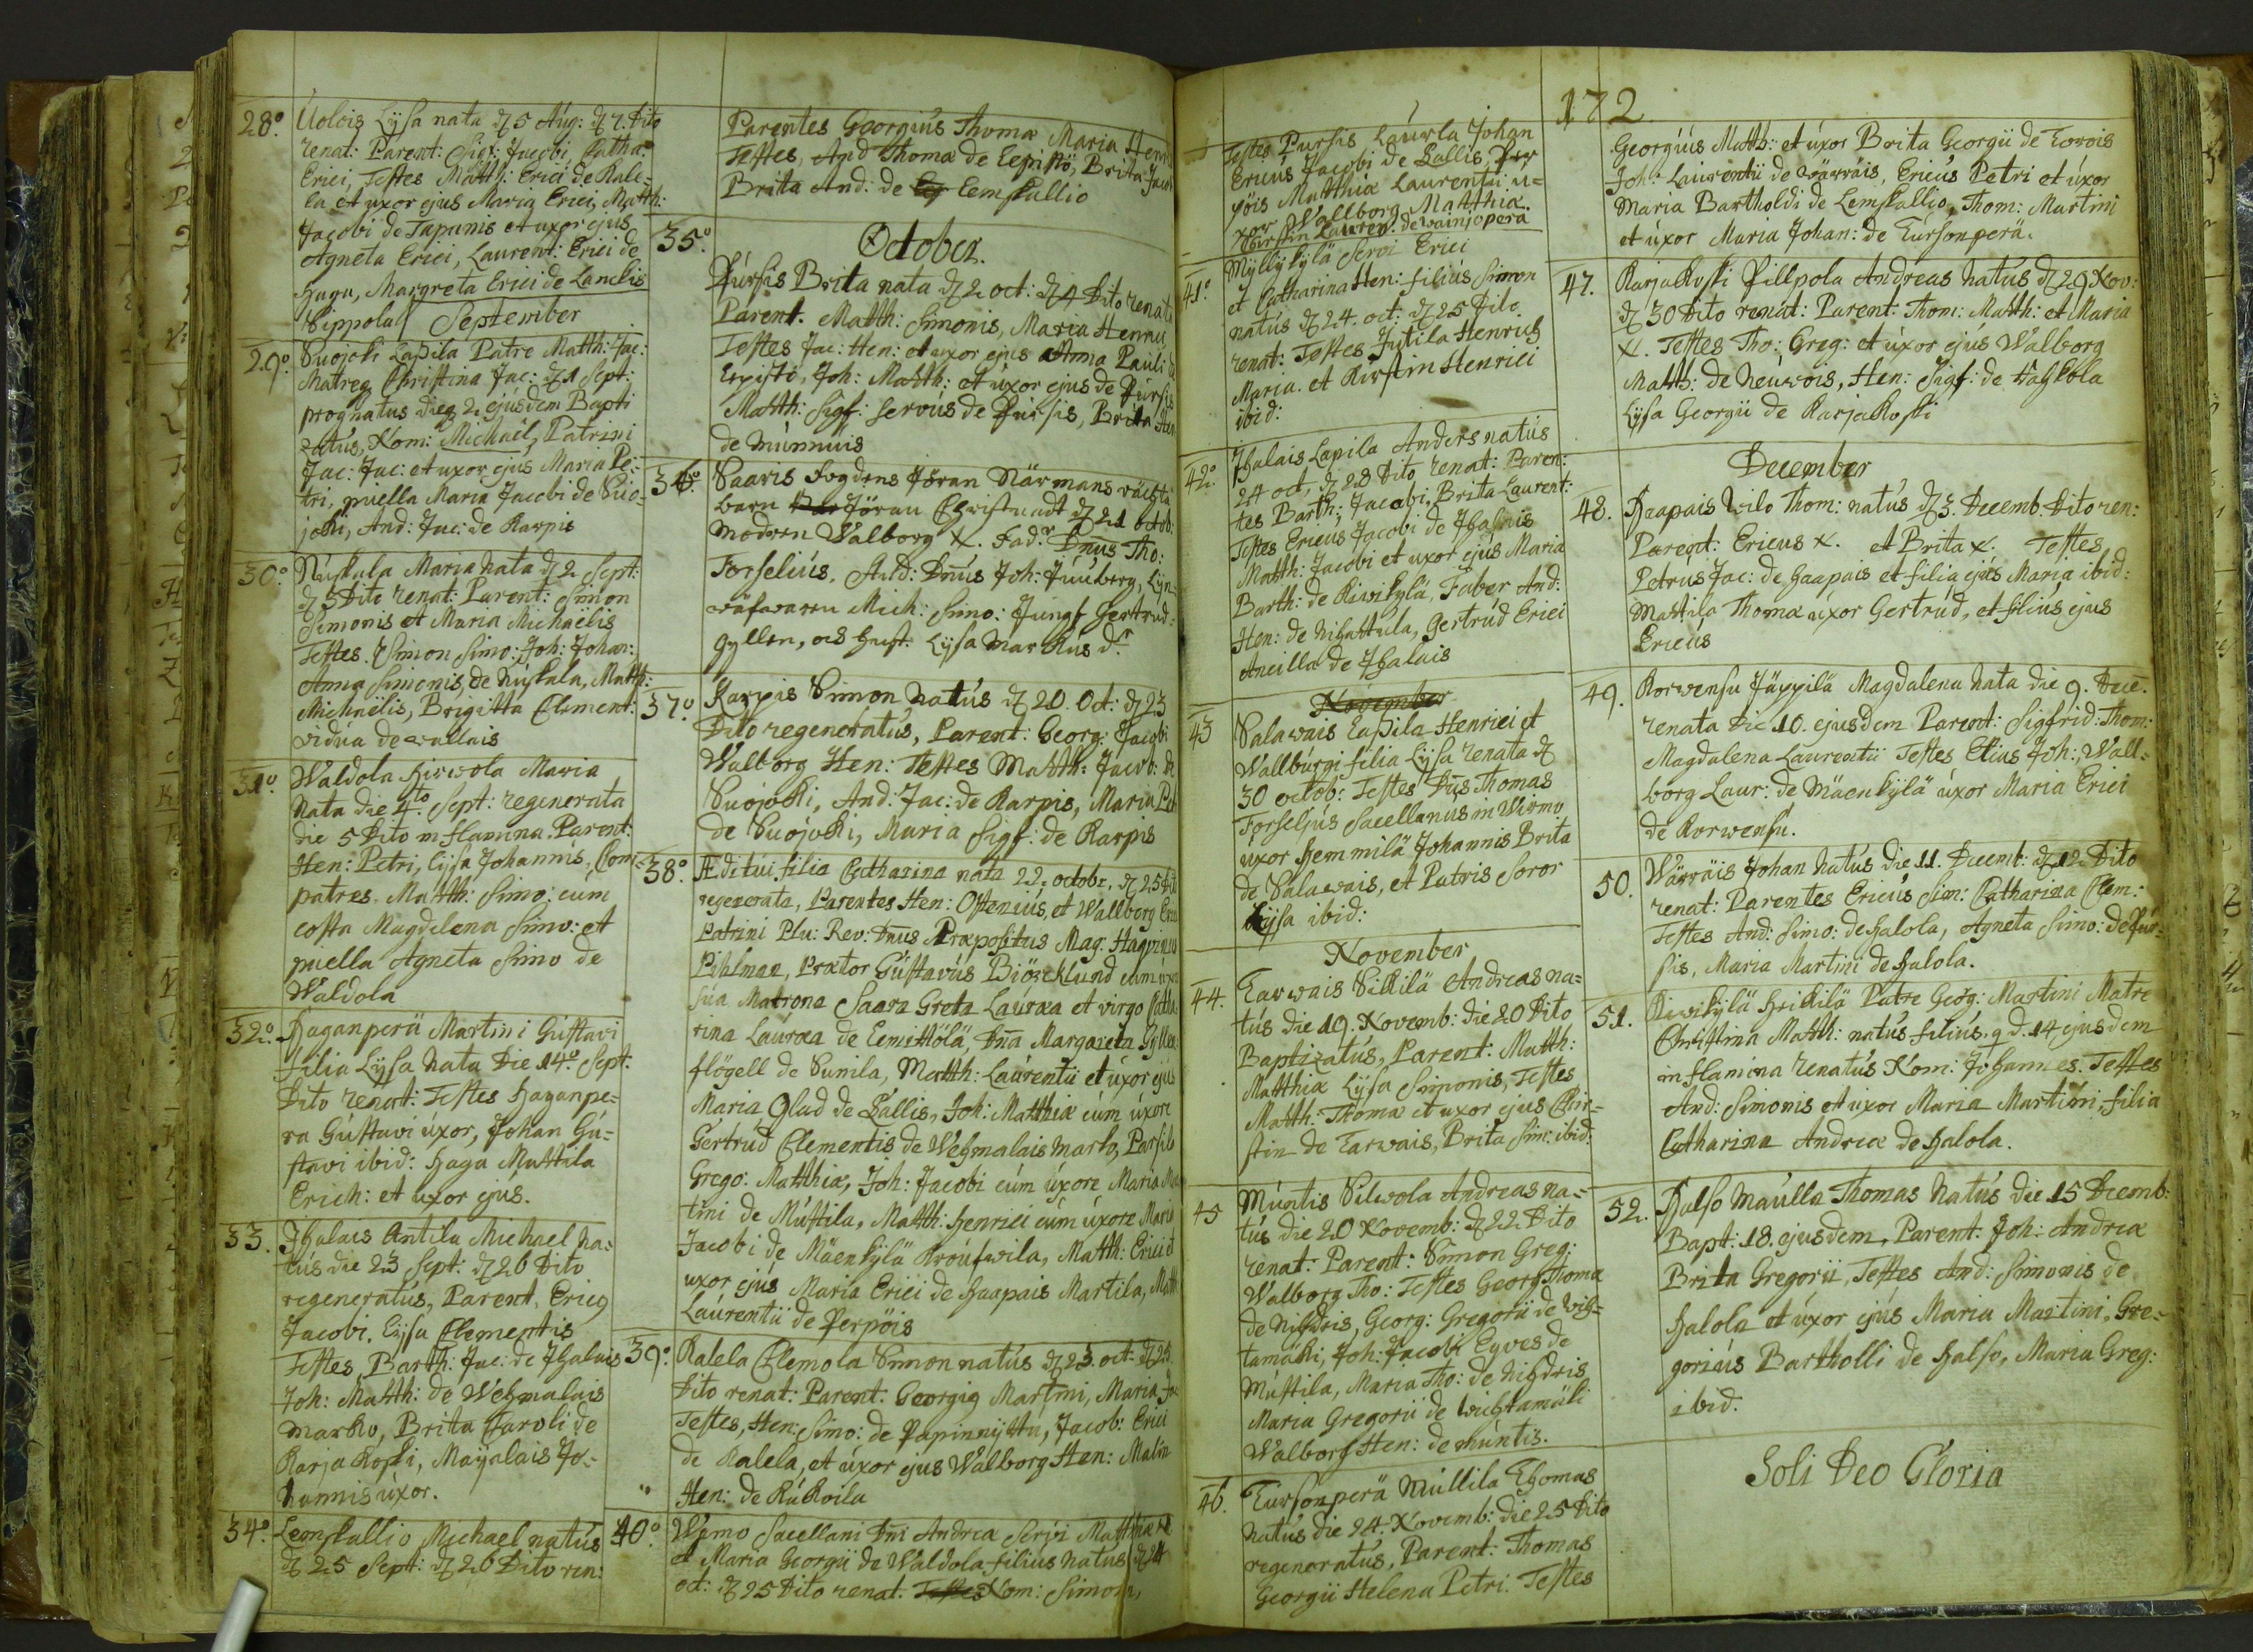 28º. Uolois Lysa nata d 5 Aug: d 7. Dito
renat: Parent: Sigf: Jacobi, Catha:
Erici, Testes Matth: Erici de Kale-
la et uxor ejus Maria Erici, Matth:
Jacobi de Tapunis et uxor ejus
Agneta Erici, Laurent: Erici de
Haga, Margreta Erici de Lanckis
Sippola
September
29º. Suojoki Lapila Patre Matth: Jac:
Matreq Christina Jac: d 1 Sept:
prognatus dieq 2 ejusdem Bapti
zatus, Nom: Michaël, Patrini
Jac: Jac: et uxor ejus Maria Pe-
tri, puella Maria Jacobi de Suo-
joki, And: Jac: de Karpis
30º. Nuskala Maria nata d 2 Sept:
d 3 Dito renat: Parent: Simon
Simonis et Maria Michaëlis
Testes Simon Simo: Joh: Johan:
Anna Simonis, de Nuskala, Matth:
Michaelis, Brigitta Clement:
vidua de wallais
31º. Waldola Hirwola Maria
Nata die 4to Sept: regenerata
die 5 Dito in flamina. Parent:
Hen: Petri, Lijsa Johannis, Com-
patres. Matth: Simo: cum
costa Magdelena Simo: et
puella Agneta Simo de
Waldola
32º. Haganperä Martini Gustavi
filia Lysa Nata Die 14º. Sept:
Dito renat: Testes Haganpe-
ra Gustavi uxor, Johan Gu-
stavi ibid: Haga Mattila
Erich: et uxor ejus.
33. Ihalais Antila Michael na-
tus die 23 Sept: d 26 Dito
regeneratus, Parent. Ericq
Jacobi. Lysa Clementis
Testes, Barth: Jac: de Ihalais
Joh: Matth: de Wehmalais
Marko, Brita Caroli de
Karjakoski, Mayalais Jo-
hannis uxor.
34º. Lemskallio Michael natus
d 25 Sept: d 26 Dito ren:
Parentes Georgius Thomæ Maria Hen
Testes, And Thomæ de Lepistö, Brita Jaco
Brita And: de Lemskallio
35º.
October.
Pursis Brita nata d 2 oct: d 4 Dito renata
Parent. Matth: Simonis, Maria Henrici
Testes Jac: Hen: et uxor ejus Anna Pauli de
Lepistö, Joh: Matth: et uxor ejus de Pursis
Matth: Sigf: servus de Pursis, Brita Hen
de Munnuis
36º. Saaris Fogdens Jöran Närmans
barn Jöran Christnadt d 21 octob:
Modren Walborg X. Fad:r Dnus Tho:
Forselius. Stud: Dnus Joh: Juuberg, Lijn-
wäfwaren Mich: Simo: Jungf Gertrud:
Gyllen, och hust: Lysa Markus d:r
37º. Karpis Simon Natus d 20. Oct: d 23
Dito regeneratus, Parent: Georg: Jacobi
Walborg Hen: Testes Matth: Jacob: de
Suojoki, And: Jac: de Karpis, Maria Pet
de Suojoki, Maria Sigf: de Karpis
38º. Æditui filia Catharina nata 22. octobr. d 25 Dit
regenerata, Parentes Hen: Ostenius, et Wallborg Erici
Patrini Plu: Rev: Dnus Præpositus Mag: Hagginus
Pihlman, Prætor Gustavus Biörcklund cum uxore
sua Matrona Saara Greta Lauræa et virgo Catha
rina Lauræa de Lemettölä, Dna Margareta Gyllen-
flögell de Sunila, Matth: Laurentii et uxor ejus
Maria Glad de Sallis, Joh: Matthiæ cum uxore
Gertrud Clementis de Wehmalais Marko, Parsila
Grego: Matthiæ, Joh: Jacobi cum uxore Maria Ma
tini de Mustila, Matth: Henrici cum uxore Maria
Jacobi de Mäenkylä Kroufwila, Matth: Erici et
uxor ejus Maria Erici de Haapais Martila, Matth
Laurentii de Perpöis
39º. Kalela Clemola Simon natus d 23. oct: d 25
Dito renat: Parent: Georgiq Martini, Maria Jo
Testes, Hen: Simo: de Papinnyttu, Jacob: Erici
de Kalela, et uxor ejus Walborg Hen: Malin
Hen: de Kukoila
40º. Wirmo Sacellani Dni Andreæ servi Matthiæ
et Maria Georgii de Waldola filius Natus d 24
oct: d 25 Dito renat. Nom: Simon,
172
Testes Pursis Laurla Johan
Ericus Jacobi de Sallis,
pöis Matthiæ Laurentii u-
xor Wallborg Matthiæ.
Kirstin Lauren. de wainjoperä
41º. Myllykylä servi Erici
et Catharina Hen: filius Simon
natus d 24. oct: d 25 Dito
renat: Testes Jutila Henrich
Maria et Kirstin Henrici
ibid:
42º. Ihalais Lapila Anders natus
24 oct, d 28 Dito renat: Paren-
tes Barth: Jacobi, Brita Laurent:
Testes Ericus Jacobi de Ihalais
Matth: Jacobi et uxor ejus Maria
Barth: de Kiwikylä, Faber And:
Hen: de Nihattula, Gertrud Erici
Ancilla de Ihalais
November
43 Salawais Lapila Henrici et
Wallburgi filia Lysa renata d
30 octob: Testes Dus Thomas
Forselius Sacellanus in Wirmo
uxor Hemmilä Johannis Brita
de Salawais, et Patris soror
Lysa ibid:
November
44. Tarwais Sikilä Andreas na-
tus die 19. Novemb: die 20 Dito
Baptizatus, Parent: Matth:
Matthiæ Lysa Simonis, Testes
Matth: Thomæ et uxor ejus Chir-
stin de Tarwais, Brita Sim: ibid:
45 Muntis Silwola Andreas na-
tus die 20 Novemb: d 22 Dito
renat: Parent: Simon Greg:
Walborg Tho: Testes Georg Thomæ
de Nihdris, Georg: Gregorii de Wih-
tamäki, Joh: Jacobi Eyves de
Mustila, Maria Tho: de Nihdris
Maria Gregorii de Wichtamäki
Walborg Hen: de Muntis.
46. Tursonperä Mullila Thomas
Natus die 24. Novemb: die 25 Dito
regeneratus, Parent: Thomas
Georgii Helena Petri. Testes
Georgius Matth: et uxor Brita Georgii de Torois
Joh: Laurentii de Wärräis, Ericus Petri et uxor
Maria Bartholdi de Lemskallio, Thom: Martini
et uxor Maria Johan: de Tursonperä.
47. Karjakoski Pillpola Andreas Natus d 29 Nov:
d 30 Dito renat: Parent: Thom: Matth: et Maria
X. Testes Tho: Greg: et uxor ejus Walborg
Matth: de Neuwois, Hen: Sigf: de Hahkola
Lysa Georgii de Karjakoski
December
48. Haapais Wilo Thom: natus d 3. Decemb. Dito ren:
Parent: Ericus X. et Brita X. Testes
Petrus Jac: de Haapais et filia ejus Maria ibid:
Mattila Thomæ uxor Gertrud, et filius ejus
Ericus
49. Korwensu Jäppilä Magdalena Nata die 9. Dece.
renata Die 10. ejusdem Parent: Sigfrid: Thom:
Magdalena Laurentii Testes Elius Joh:, Wall-
borg Laur: de Mäenkylä uxor Maria Erici
de Korwensu.
50. Wärräis Johan Natus die 11. Decemb: d 12 Dito
renat: Parentes Ericus Sim: Catharina Clem:
Testes And: Simo: de Halola, Agneta Simo: de Pur-
sis, Maria Martini de Halola.
51. Kiwikylä Heikilä Patre Georg: Martini Matre
Christina Matth: natus filius. q d. 14 ejusdem
in flamina renatus Nom: Johannes. Testes
And: Simonis et uxor Maria Martini, filia
Catharina Andreæ de Halola.
52. Halso Maulla Thomas Natus die 15 Decemb:
Bapt: 18. ejusdem, Parent: Joh: Andreæ
Brita Gregorii, Testes And: Simonis de
Halola et uxor ejus Maria Martini, Gre-
gorius Bartholli de Halso, Maria Greg:
ibid.
Soli Deo Gloria